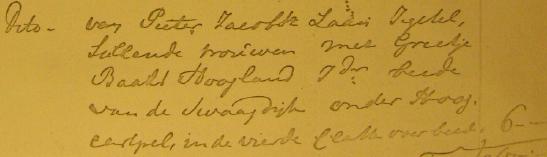 Dito - van Pieter Jacobsz Laan Igetel,
Sullende trouwen met Grietje
Baakes Hoogland J:Dr beede
van de Zwaagdijk onder Hoog,
carspel, in de vierde Classe over beede, 6-